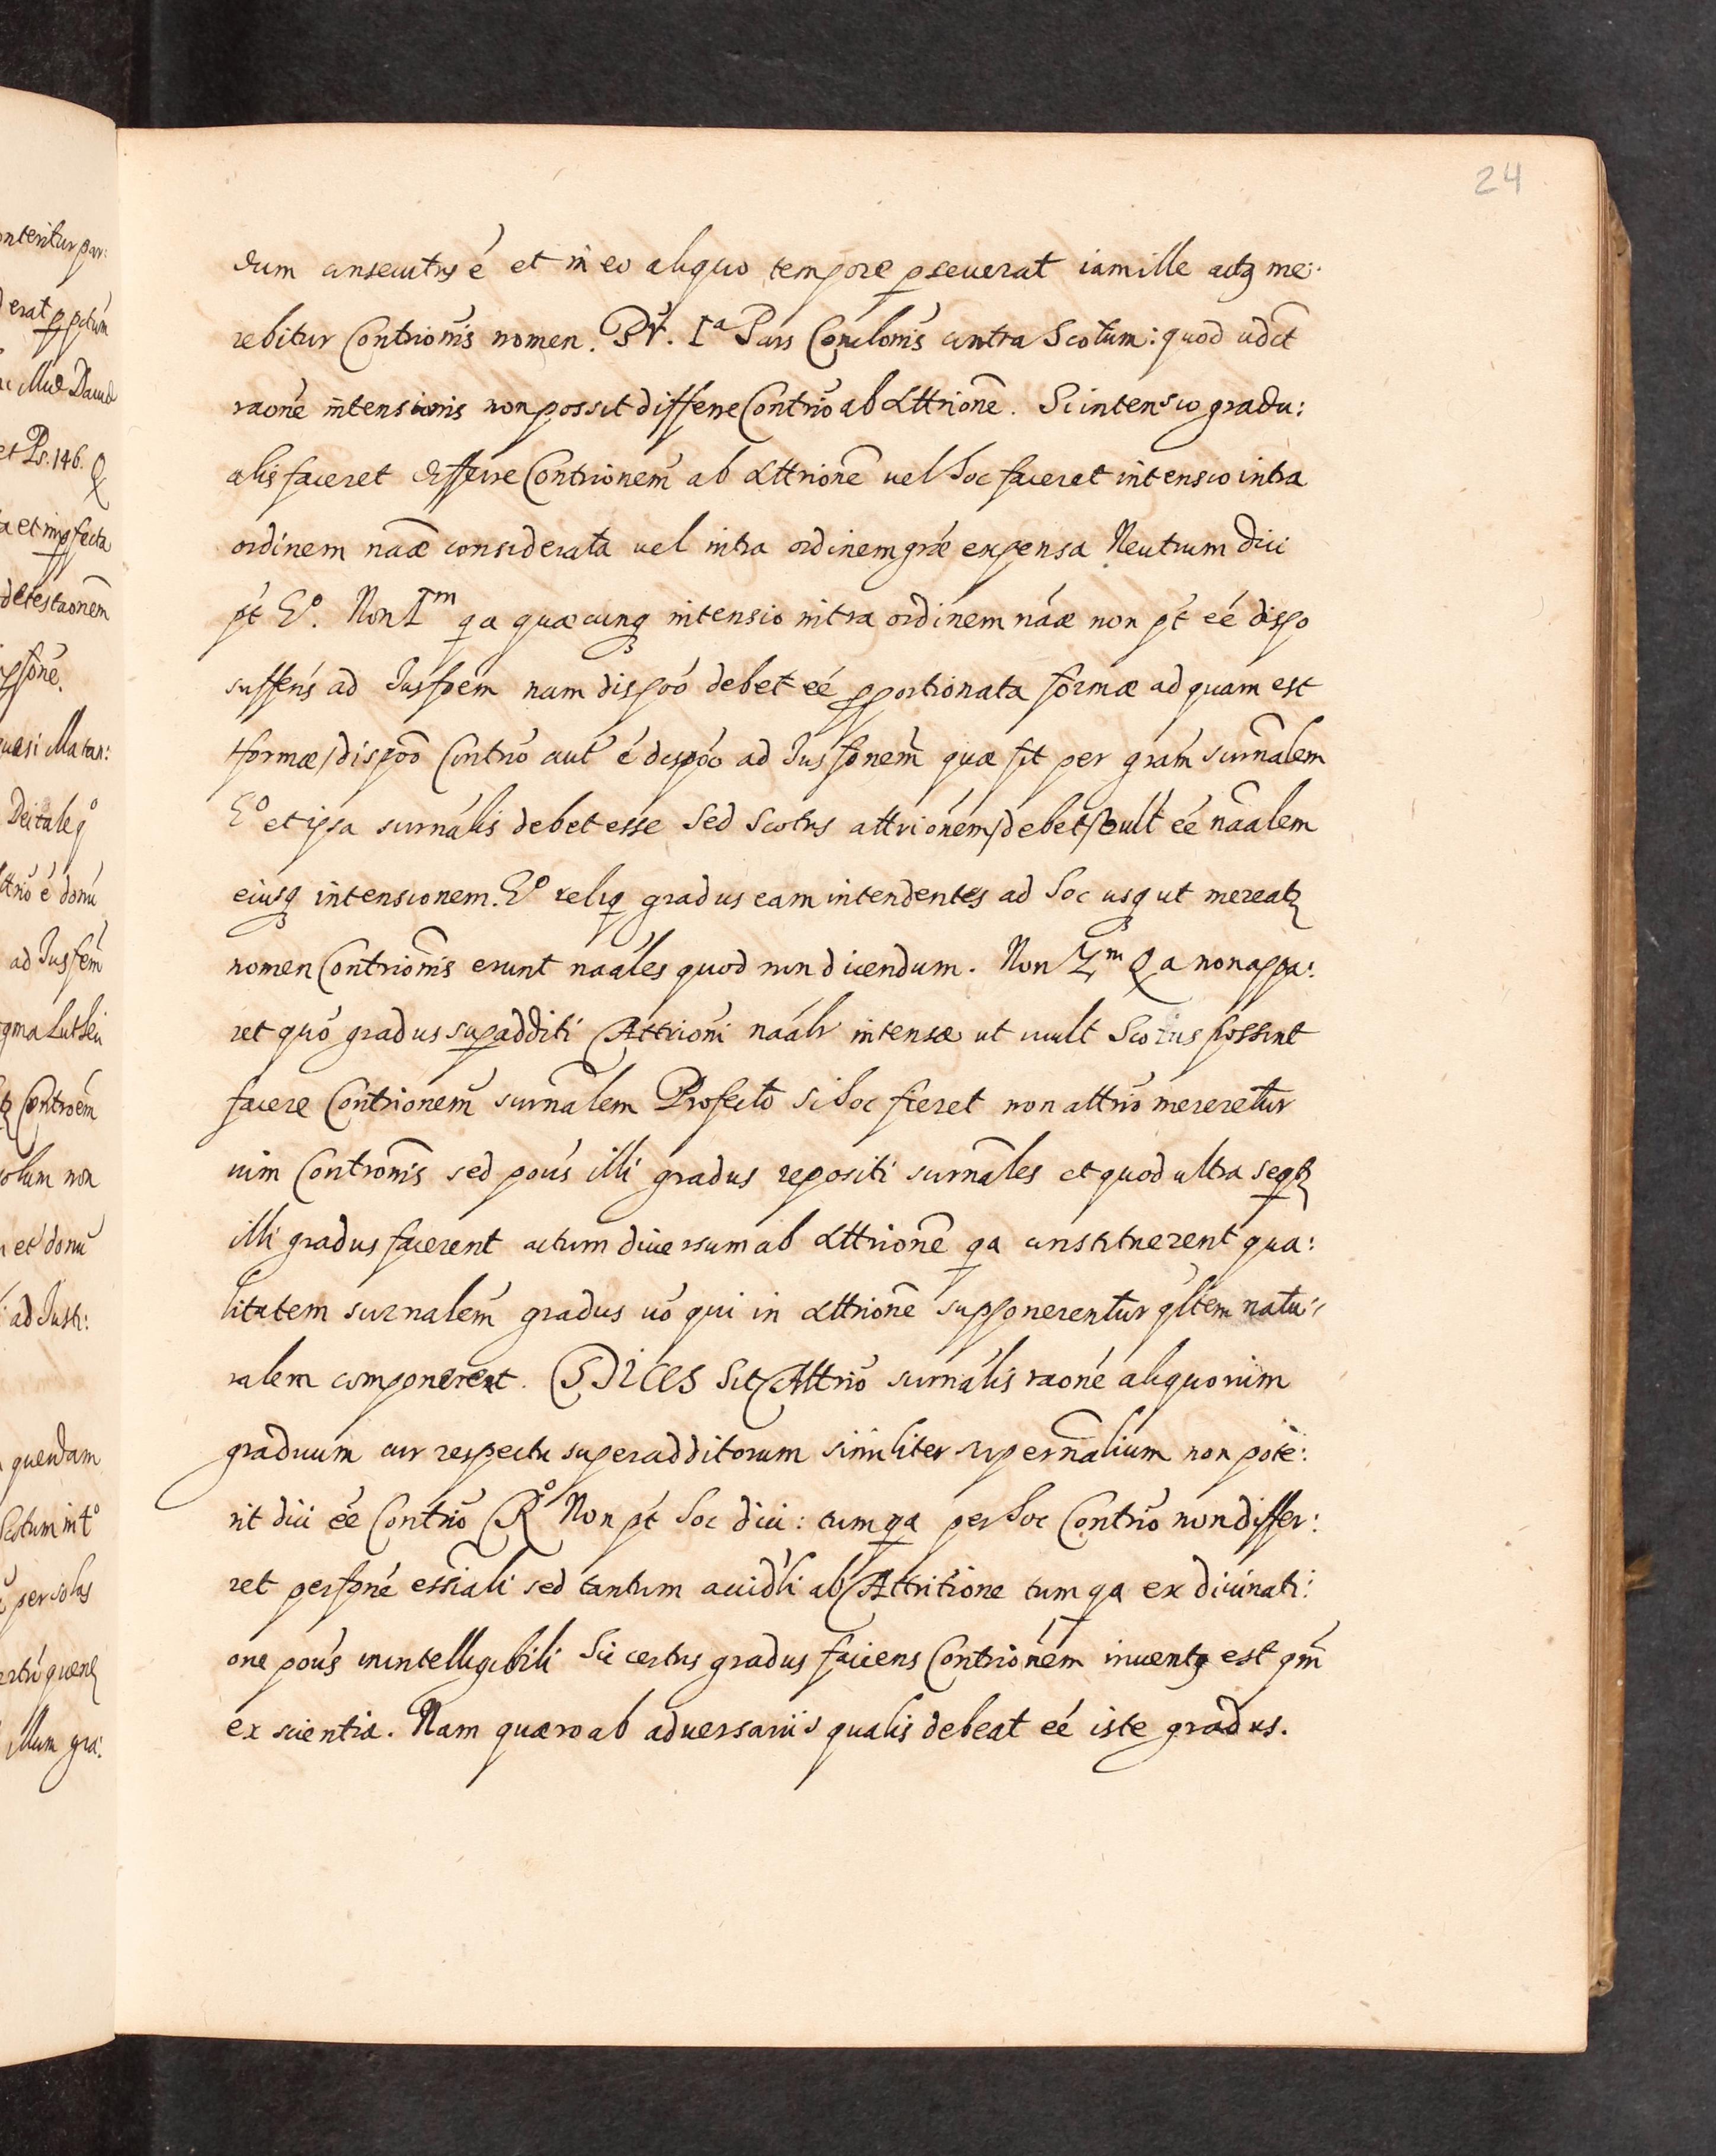 24
dum consecutus é et in eo aliquo tempore pseuerat iam ille actus me:
rebitur Contrionis nomen. Pr. Iª Pars Conclonis contra Scotum: quod
raone intensionis non possit differre Contrio ab Attrione. Si intensio gradu:
alis faceret differre Contrionem ab Attrione uel hoc faceret intensio intra
ordinem naæ considerata uel intra ordinem græ expensa Neutrum dici
pt Eº. Non Iᵐ qa quæcunq intensio intra ordinem naæ non pt eé dispo
suffens ad Jusfoem nam dispoo debet eé pportionata formæ ad quam est
/formæ/ dispoo Contrio aut é dispoo ad Jusfonem quæ fit per gram surnalem
Eº et ipsa surnalis debet esse Sed Scotus attrionem /debet/ uult eé naalem
eiusq intensionem. Eº reliq gradus eam intendentes ad hoc usq ut mereatz
nomen Contrionis erunt naales quod non dicendum. Non 2ᵐ Qa non appa:
ret quo gradus supadditi Attrioni naalr intensæ ut uult Scotus possint
facere Contrionem surnalem Profecto si hoc fieret non attrio mereretur
uim Contrionis sed pous illi gradus repositi surnales et quod ultra seqtz
illi gradus facerent actum diuersum ab Attrione qa constituerent qua:
litatem surnalem gradus uo qui in Attrione supponerentur qltem natu:
ralem componerent. DICES Sit Attrio surnalis raone aliquorum
graduum cur respectu superadditorum similiter supernalium non pote:
rit dici eé Contrio Rº Non pt hoc dici: tum qa per hoc Contrio non differ:
ret perfone essiali sed tantum accidli ab Attritione tum qa ex diuinati:
one pous inintelligibili hic certus gradus faciens Contrionem inuentus est qm
ex scientia. Nam quæro ab aduersariis qualis debeat eé iste gradus.